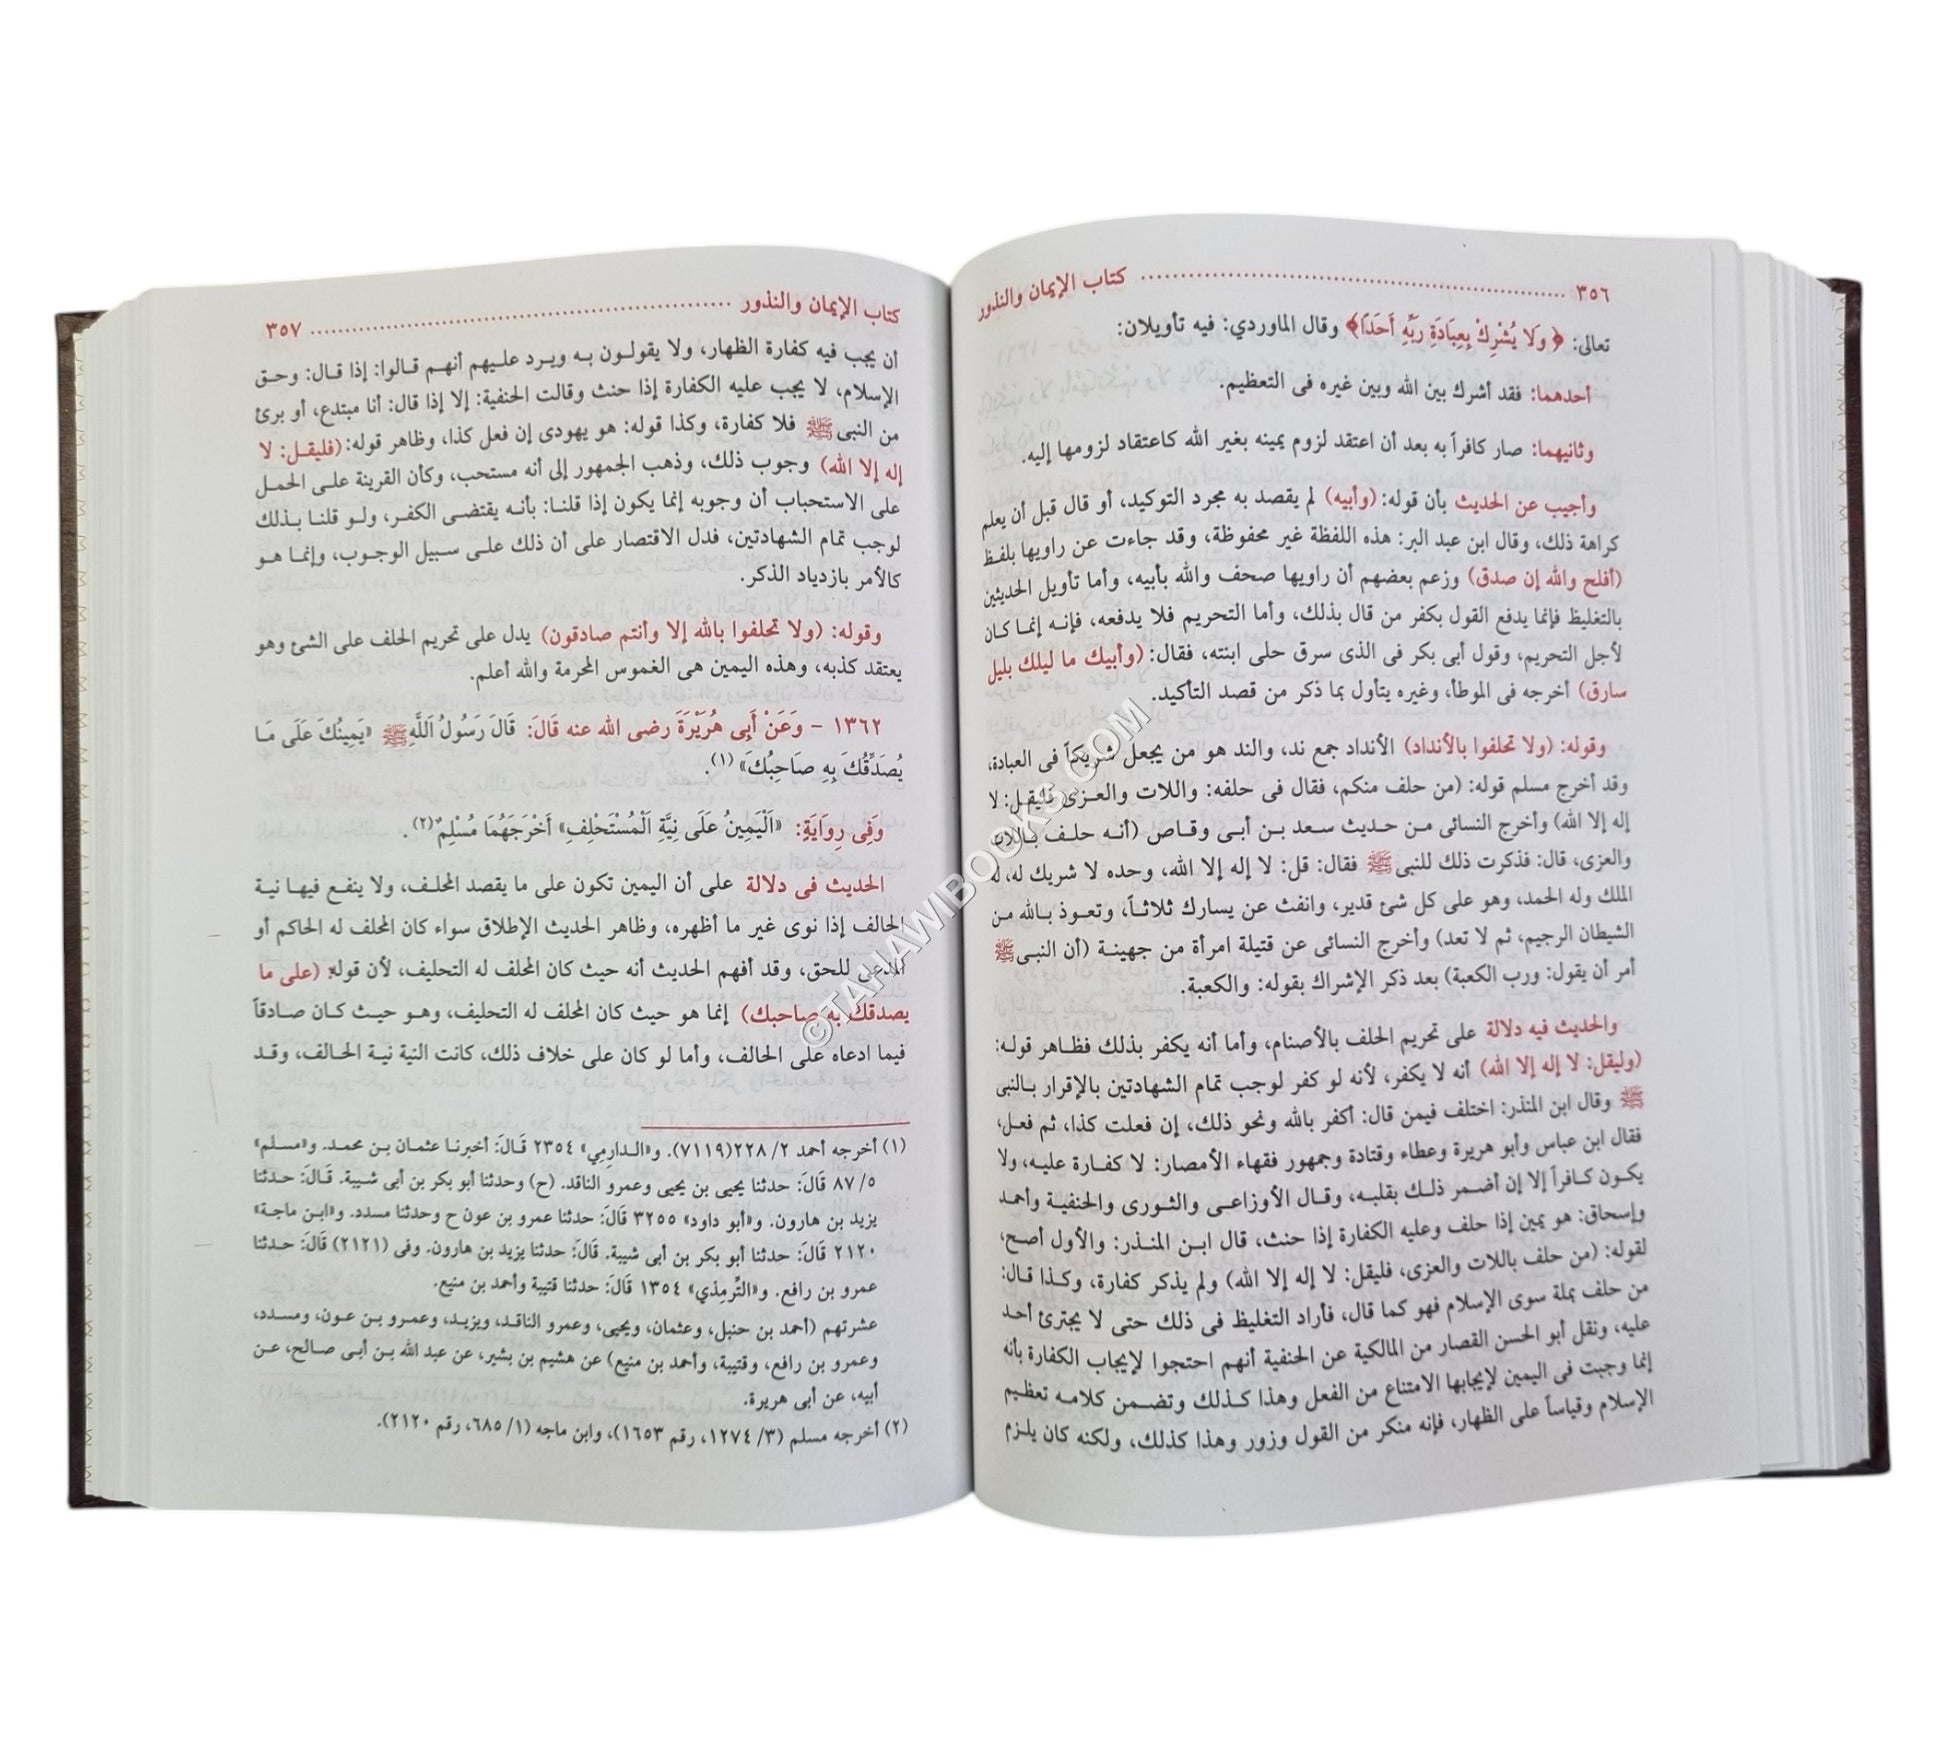 ٣٥٦ ........ كتاب الإيمان والنذور
تعالى: ﴿وَلَا يُشْرِكْ بِعِبَادَةِ رَبِّهِ أَحَدًا﴾ وقال الماوردي: فيه تأويلان:
أحدهما: فقد أشرك بين الله وبين غيره فى التعظيم.
وثانيهما: صار كافراً به بعد أن اعتقد لزوم يمينه بغير الله كاعتقاد لزومها إليه.
وأجيب عن الحديث بأن قوله: (وأبيه) لم يقصد به مجرد التوكيد، أو قال قبل أن يعلم
كراهة ذلك، وقال ابن عبد البر: هذه اللفظة غير محفوظة، وقد جاءت عن راويها بلفظ
(أفلح والله إن صدق) وزعم بعضهم أن راويها صحف والله بأبيه، وأما تأويل الحديثين
بالتغليظ فإنما يدفع القول بكفر من قال بذلك، وأما التحريم فلا يدفعه، فإنه إنما كان
لأجل التحريم، وقول أبى بكر فى الذى سرق حلى ابنته، فقال: (وأبيك ما ليلك بليل
سارق) أخرجه فى الموطأ، وغيره يتأول بما ذكر من قصد التأكيد.
وقوله: (ولا تحلفوا بالأنداد) الأنداد جمع ند، والند هو من يجعل شريكاً فى العبادة،
وقد أخرج مسلم قوله: (من حلف منكم، فقال فى حلفه: واللات والعزى فليقل: لا
إله إلا الله) وأخرج النسائى من حديث سعد بن أبى وقاص (أنه حلف باللات
والعزى، قال: فذكرت ذلك للنبى ﷺ فقال: قل: لا إله إلا الله، وحده لا شريك له، له
الملك وله الحمد، وهو على كل شئ قدير، وانفث عن يسارك ثلاثاً، وتعوذ بالله من
الشيطان الرجيم، ثم لا تعد) وأخرج النسائى عن قتيلة امرأة من جهينة (أن النبى ﷺ
أمر أن يقول: ورب الكعبة) بعد ذكر الإشراك بقوله: والكعبة.
والحديث فيه دلالة على تحريم الحلف بالأصنام، وأما أنه يكفر بذلك فظاهر قوله:
(وليقل: لا إله إلا الله) أنه لا يكفر، لأنه لو كفر لوجب تمام الشهادتين بالإقرار بالنبى
ﷺ وقال ابن المنذر: اختلف فيمن قال: أكفر بالله ونحو ذلك، إن فعلت كذا، ثم فعل،
فقال ابن عباس وأبو هريرة وعطاء وقتادة وجمهور فقهاء الأمصار: لا كفارة عليه، ولا
يكون كافراً إلا إن أضمر ذلك بقلبه، وقال الأوزاعى والثورى والحنفية وأحمد
وإسحاق: هو يمين إذا حلف وعليه الكفارة إذا حنث، قال ابن المنذر: والأول أصح،
لقوله: (من حلف باللات والعزى، فليقل: لا إله إلا الله) ولم يذكر كفارة، وكذا قال:
من حلف بملة سوى الإسلام فهو كما قال، فأراد التغليظ فى ذلك حتى لا يجترئ أحد
عليه، ونقل أبو الحسن القصار من المالكية عن الحنفية أنهم احتجوا لإيجاب الكفارة بأنه
إنما وجبت فى اليمين لإيجابها الامتناع من الفعل وهذا كذلك وتضمن كلامه تعظيم
الإسلام وقياساً على الظهار، فإنه منكر من القول وزور وهذا كذلك، ولكنه كان يلزم
كتاب الإيمان والنذور ........ ٣٥٧
أن يجب فيه كفارة الظهار، ولا يقولون به ويرد عليهم أنهم قالوا: إذا قال: وحق
الإسلام، لا يجب عليه الكفارة إذا حنث وقالت الحنفية: إلا إذا قال: أنا مبتدع، أو برئ
من النبى ﷺ فلا كفارة، وكذا قوله: هو يهودى إن فعل كذا، وظاهر قوله: (فليقل: لا
إله إلا الله) وجوب ذلك، وذهب الجمهور إلى أنه مستحب، وكأن القرينة على الحمل
على الاستحباب أن وجوبه إنما يكون إذا قلنا: بأنه يقتضى الكفر، ولو قلنا بذلك
لوجب تمام الشهادتين، فدل الاقتصار على أن ذلك على سبيل الوجوب، وإنما هو
كالأمر بازدياد الذكر.
وقوله: (ولا تحلفوا بالله إلا وأنتم صادقون) يدل على تحريم الحلف على الشئ وهو
يعتقد كذبه، وهذه اليمين هى الغموس المحرمة والله أعلم.
١٣٦٢ - وَعَنْ أَبِى هُرَيْرَةَ رضى الله عنه قَالَ: قَالَ رَسُولُ اَللَّهِ ﷺ «يَمِينُكَ عَلَى مَا
يُصَدِّقُكَ بِهِ صَاحِبُكَ» (١).
وَفِى رِوَايَةٍ: «اَلْيَمِينُ عَلَى نِيَّةِ اَلْمُسْتَحْلِفِ» أَخْرَجَهُمَا مُسْلِمٌ (٢).
الحديث فى دلالة على أن اليمين تكون على ما يقصد المحلف، ولا ينفع فيها نية
الحالف إذا نوى غير ما أظهره، وظاهر الحديث الإطلاق سواء كان المحلف له الحاكم أو
المدعى للحق، وقد أفهم الحديث أنه حيث كان المحلف له التحليف، لأن قوله: (على ما
يصدقك به صاحبك) إنما هو حيث كان المحلف له التحليف، وهو حيث كان صادقاً
فيما ادعاه على الحالف، وأما لو كان على خلاف ذلك، كانت النية نية الحالف، وقد
(١) أخرجه أحمد ٢/ ٢٢٨(٧١١٩). و«الدارِمِي» ٢٣٥٤ قَالَ: أخبرنا عثمان بن محمد. و«مسلم»
٥/ ٨٧ قَالَ: حدثنا يحيى بن يحيى وعمرو الناقد. (ح) وحدثنا أبو بكر بن أبى شيبة. قَالَ: حدثنا
يزيد بن هارون. و«أبو داود» ٣٢٥٥ قَالَ: حدثنا عمرو بن عون ح وحدثنا مسدد. و«ابن ماجة»
٢١٢٠ قَالَ: حدثنا أبو بكر بن أبى شيبة. قَالَ: حدثنا يزيد بن هارون. وفى (٢١٢١) قَالَ: حدثنا
عمرو بن رافع. و«التِّرمِذي» ١٣٥٤ قَالَ: حدثنا قتيبة وأحمد بن منيع.
عشرتهم (أحمد بن حنبل، وعثمان، ويحيى، وعمرو الناقد، ويزيد، وعمرو بن عون، ومسدد،
وعمرو بن رافع، وقتيبة، وأحمد بن منيع) عن هشيم بن بشير، عن عبد الله بن أبى صالح، عن
أبيه، عن أبى هريرة.
(٢) أخرجه مسلم (٣/ ١٢٧٤، رقم ١٦٥٣)، وابن ماجه (١/ ٦٨٥، رقم ٢١٢٠).
©TAHAWIBOOKS.COM